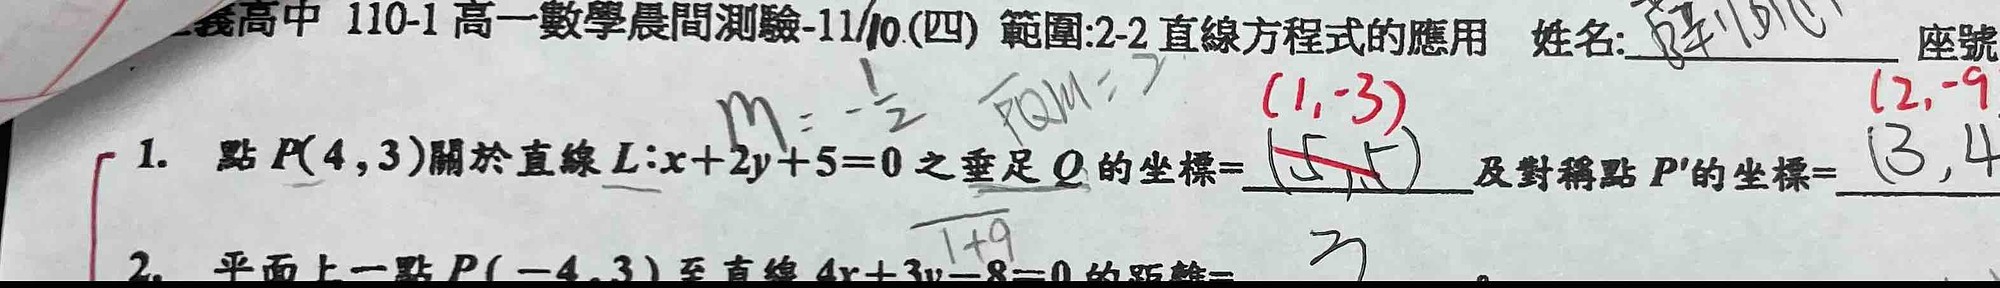 義高中 110-1 高一數學晨間測驗-11/10.(四) 範圍:2-2 直線方程式的應用 姓名: 座號
m = -1/2 (1,-3) (2,-9
1. 點 P(4,3)關於直線 L:x+2y+5=0 之垂足 Q 的坐標=(5,5) 及對稱點 P'的坐標=(3,4
1+9
2. 平面上一點 P(-4,3) 至直線 4x+3y-8=0 的距離=